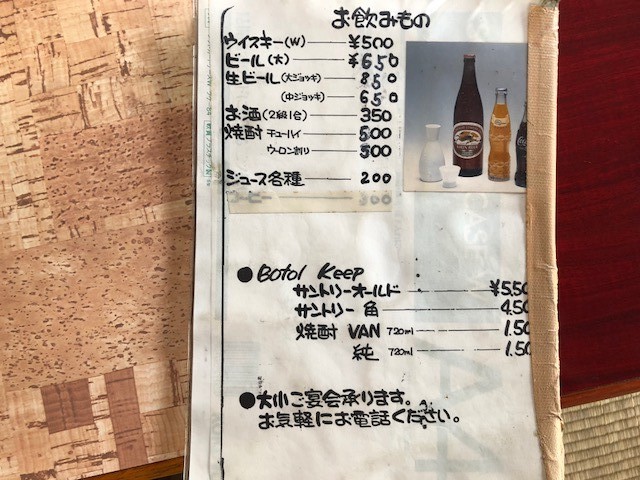 お飲みもの
ウイスキー(W) ¥500
ビール(大) ¥650
生ビール(大ジョッキ) 850
(中ジョッキ) 650
お酒(2級1合) 350
焼酎 チューハイ 500
ウーロン割り 500
ジュース各種 200
コーヒー 300
●Botol Keep
サントリーオールド ¥5.50
サントリー 角 4.50
焼酎 VAN 720ml 1.50
純 720ml 1.50
●大小ご宴会承ります。
お気軽にお電話ください。